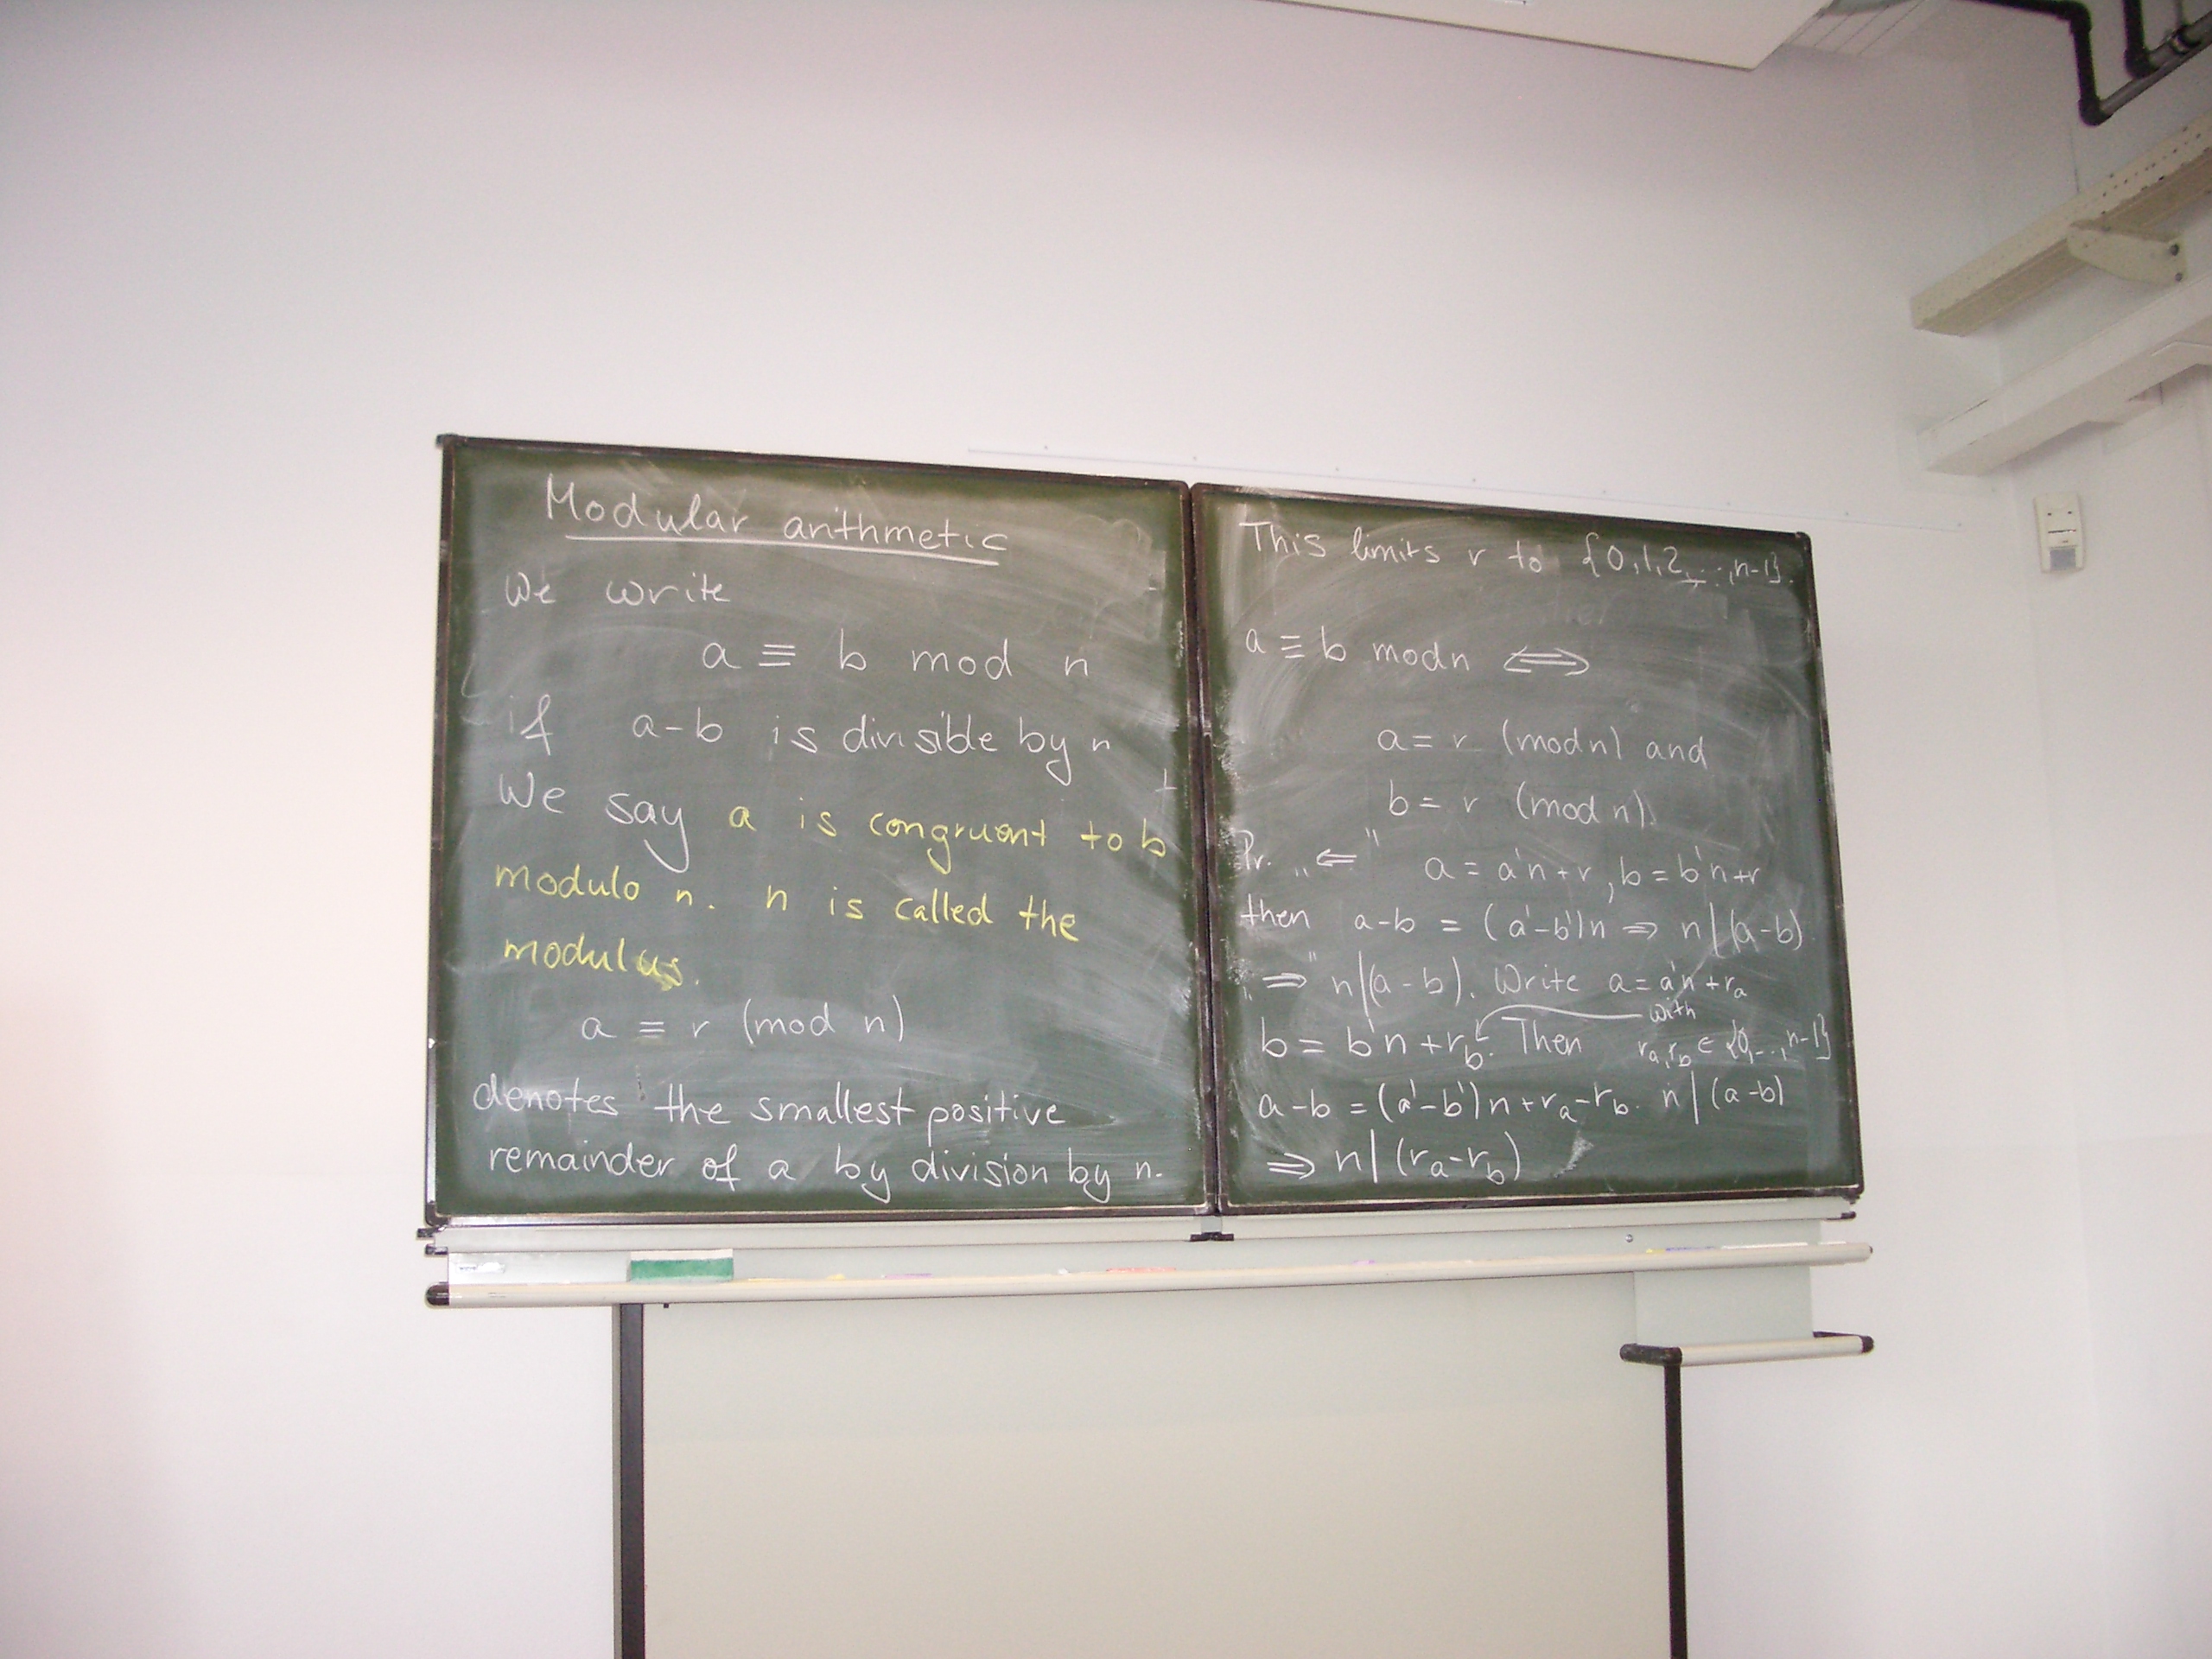 Modular arithmetic
We write
a ≡ b mod n
if a-b is divisible by n
We say a is congruent to b
modulo n. n is called the
modulus.
a ≡ r (mod n)
denotes the smallest positive
remainder of a by division by n.
This limits r to {0,1,2,...,n-1}.
a ≡ b mod n ⟺
a = r (mod n) and
b = r (mod n).
Pr. „⇐" a = a'n+r, b = b'n+r
then a-b = (a'-b')n ⇒ n|(a-b)
„⇒" n|(a-b). Write a = a'n+r_a
with
b = b'n+r_b. Then r_a,r_b ∈ {0,...,n-1}
a-b = (a'-b')n+r_a-r_b. n|(a-b)
⇒ n|(r_a-r_b)